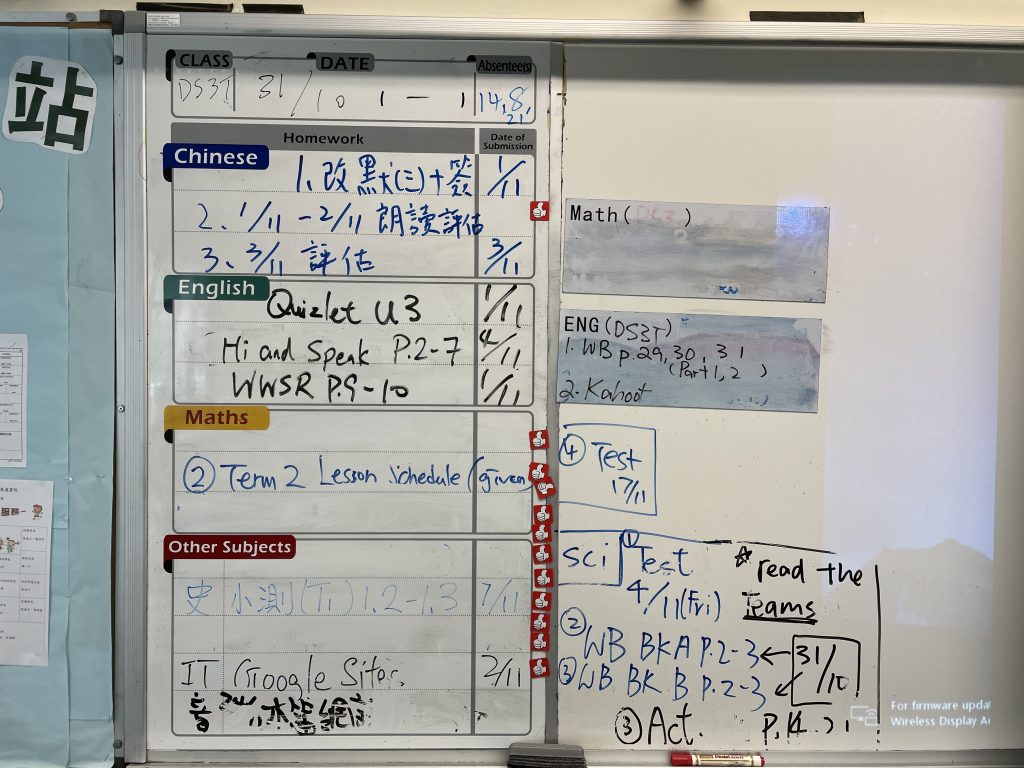 站
CLASS DATE Absentee(s)
DS3T 31/10 1 — 1 14,8,
21
Homework Date of Submission
Chinese
1、改默(三)+簽 1/11
2、1/11 - 2/11 朗讀評估
3、3/11 評估 3/11
English
Quizlet U3 1/11
Hi and Speak P.2-7 4/11
WWSR P.9-10 1/11
Maths
② Term 2 Lesson Schedule (given
Other Subjects
史 小測(T1) 1.2-1.3 7/11
IT Google Sites 2/11
Math( DS3 )
ENG(DS3T)
1. WB p.29, 30, 31
(Part 1, 2 )
2. Kahoot
④ Test
17/11
sci ① Test
4/11(Fri)
☆ read the
Teams
② WB BK A P.2-3 ← 31/10
③ WB BK B P.2-3
③ Act.
服務~
For firmware updat
Wireless Display A